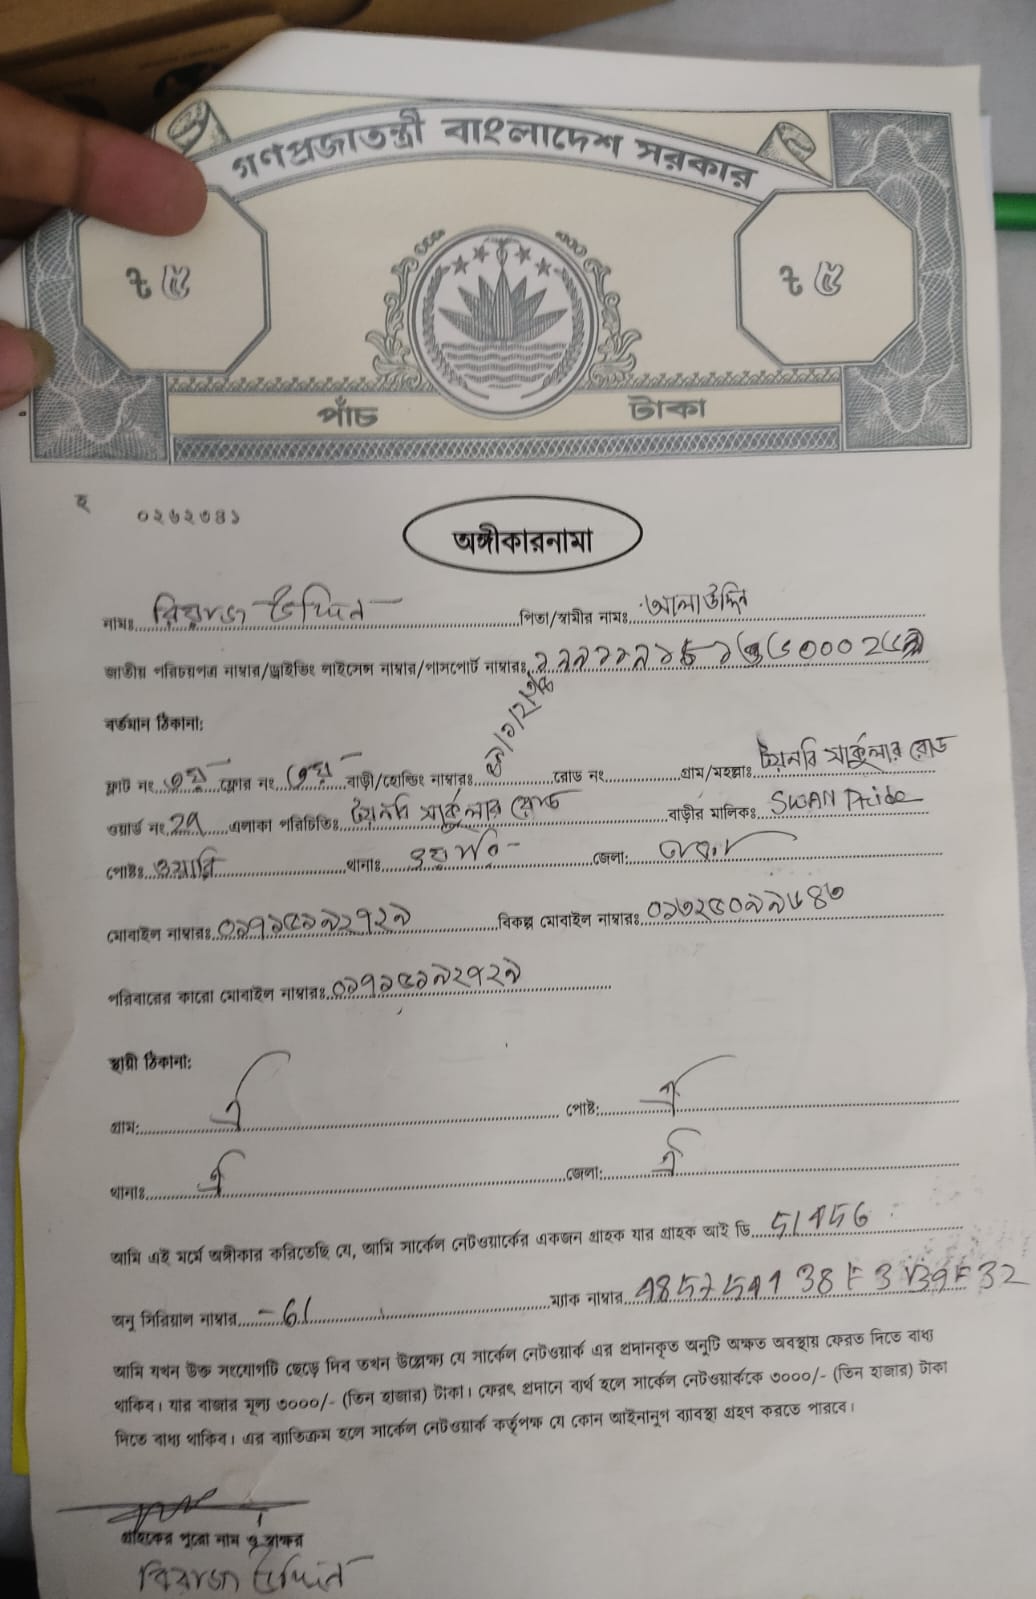 গণপ্রজাতন্ত্রী বাংলাদেশ সরকার
ট ৫ ট ৫
পাঁচ টাকা
হ ০২৬২৩৪১
অঙ্গীকারনামা
নামঃ রিয়াজ উদ্দিন পিতা/স্বামীর নামঃ আলাউদ্দিন
জাতীয় পরিচয়পত্র নাম্বার/ড্রাইভিং লাইসেন্স নাম্বার/পাসপোর্ট নাম্বারঃ
বর্তমান ঠিকানা:
ফ্লাট নং ৩য় ফ্লোর নং ৩য় বাড়ী/হোল্ডিং নাম্বারঃ রোড নং গ্রাম/মহল্লাঃ টয়েনবি সার্কুলার রোড
ওয়ার্ড নং এলাকা পরিচিতিঃ টয়েনবি সার্কুলার রোড বাড়ীর মালিকঃ SWAN Pride
পোষ্টঃ ওয়ারি থানাঃ ওয়ারি জেলা: ঢাকা
মোবাইল নাম্বারঃ ০১৭১৫১৯২৭২৯ বিকল্প মোবাইল নাম্বারঃ ০১৬২৫০৯৯৬৪৩
পরিবারের কারো মোবাইল নাম্বারঃ ০১৭১৫১৯২৭২৯
স্থায়ী ঠিকানা:
গ্রাম: ঐ পোষ্ট: ঐ
থানাঃ ঐ জেলা: ঐ
আমি এই মর্মে অঙ্গীকার করিতেছি যে, আমি সার্কেল নেটওয়ার্কের একজন গ্রাহক যার গ্রাহক আই ডি
অনু সিরিয়াল নাম্বার -61 ম্যাক নাম্বার
আমি যখন উক্ত সংযোগটি ছেড়ে দিব তখন উল্লেক্ষ্য যে সার্কেল নেটওয়ার্ক এর প্রদানকৃত অনুটি অক্ষত অবস্থায় ফেরত দিতে বাধ্য
থাকিব। যার বাজার মূল্য ৩০০০/- (তিন হাজার) টাকা। ফেরৎ প্রদানে ব্যর্থ হলে সার্কেল নেটওয়ার্ককে ৩০০০/- (তিন হাজার) টাকা
দিতে বাধ্য থাকিব। এর ব্যাতিক্রম হলে সার্কেল নেটওয়ার্ক কর্তৃপক্ষ যে কোন আইনানুগ ব্যাবস্থা গ্রহণ করতে পারবে।
গ্রাহকের পুরো নাম ও স্বাক্ষর
রিয়াজ উদ্দিন